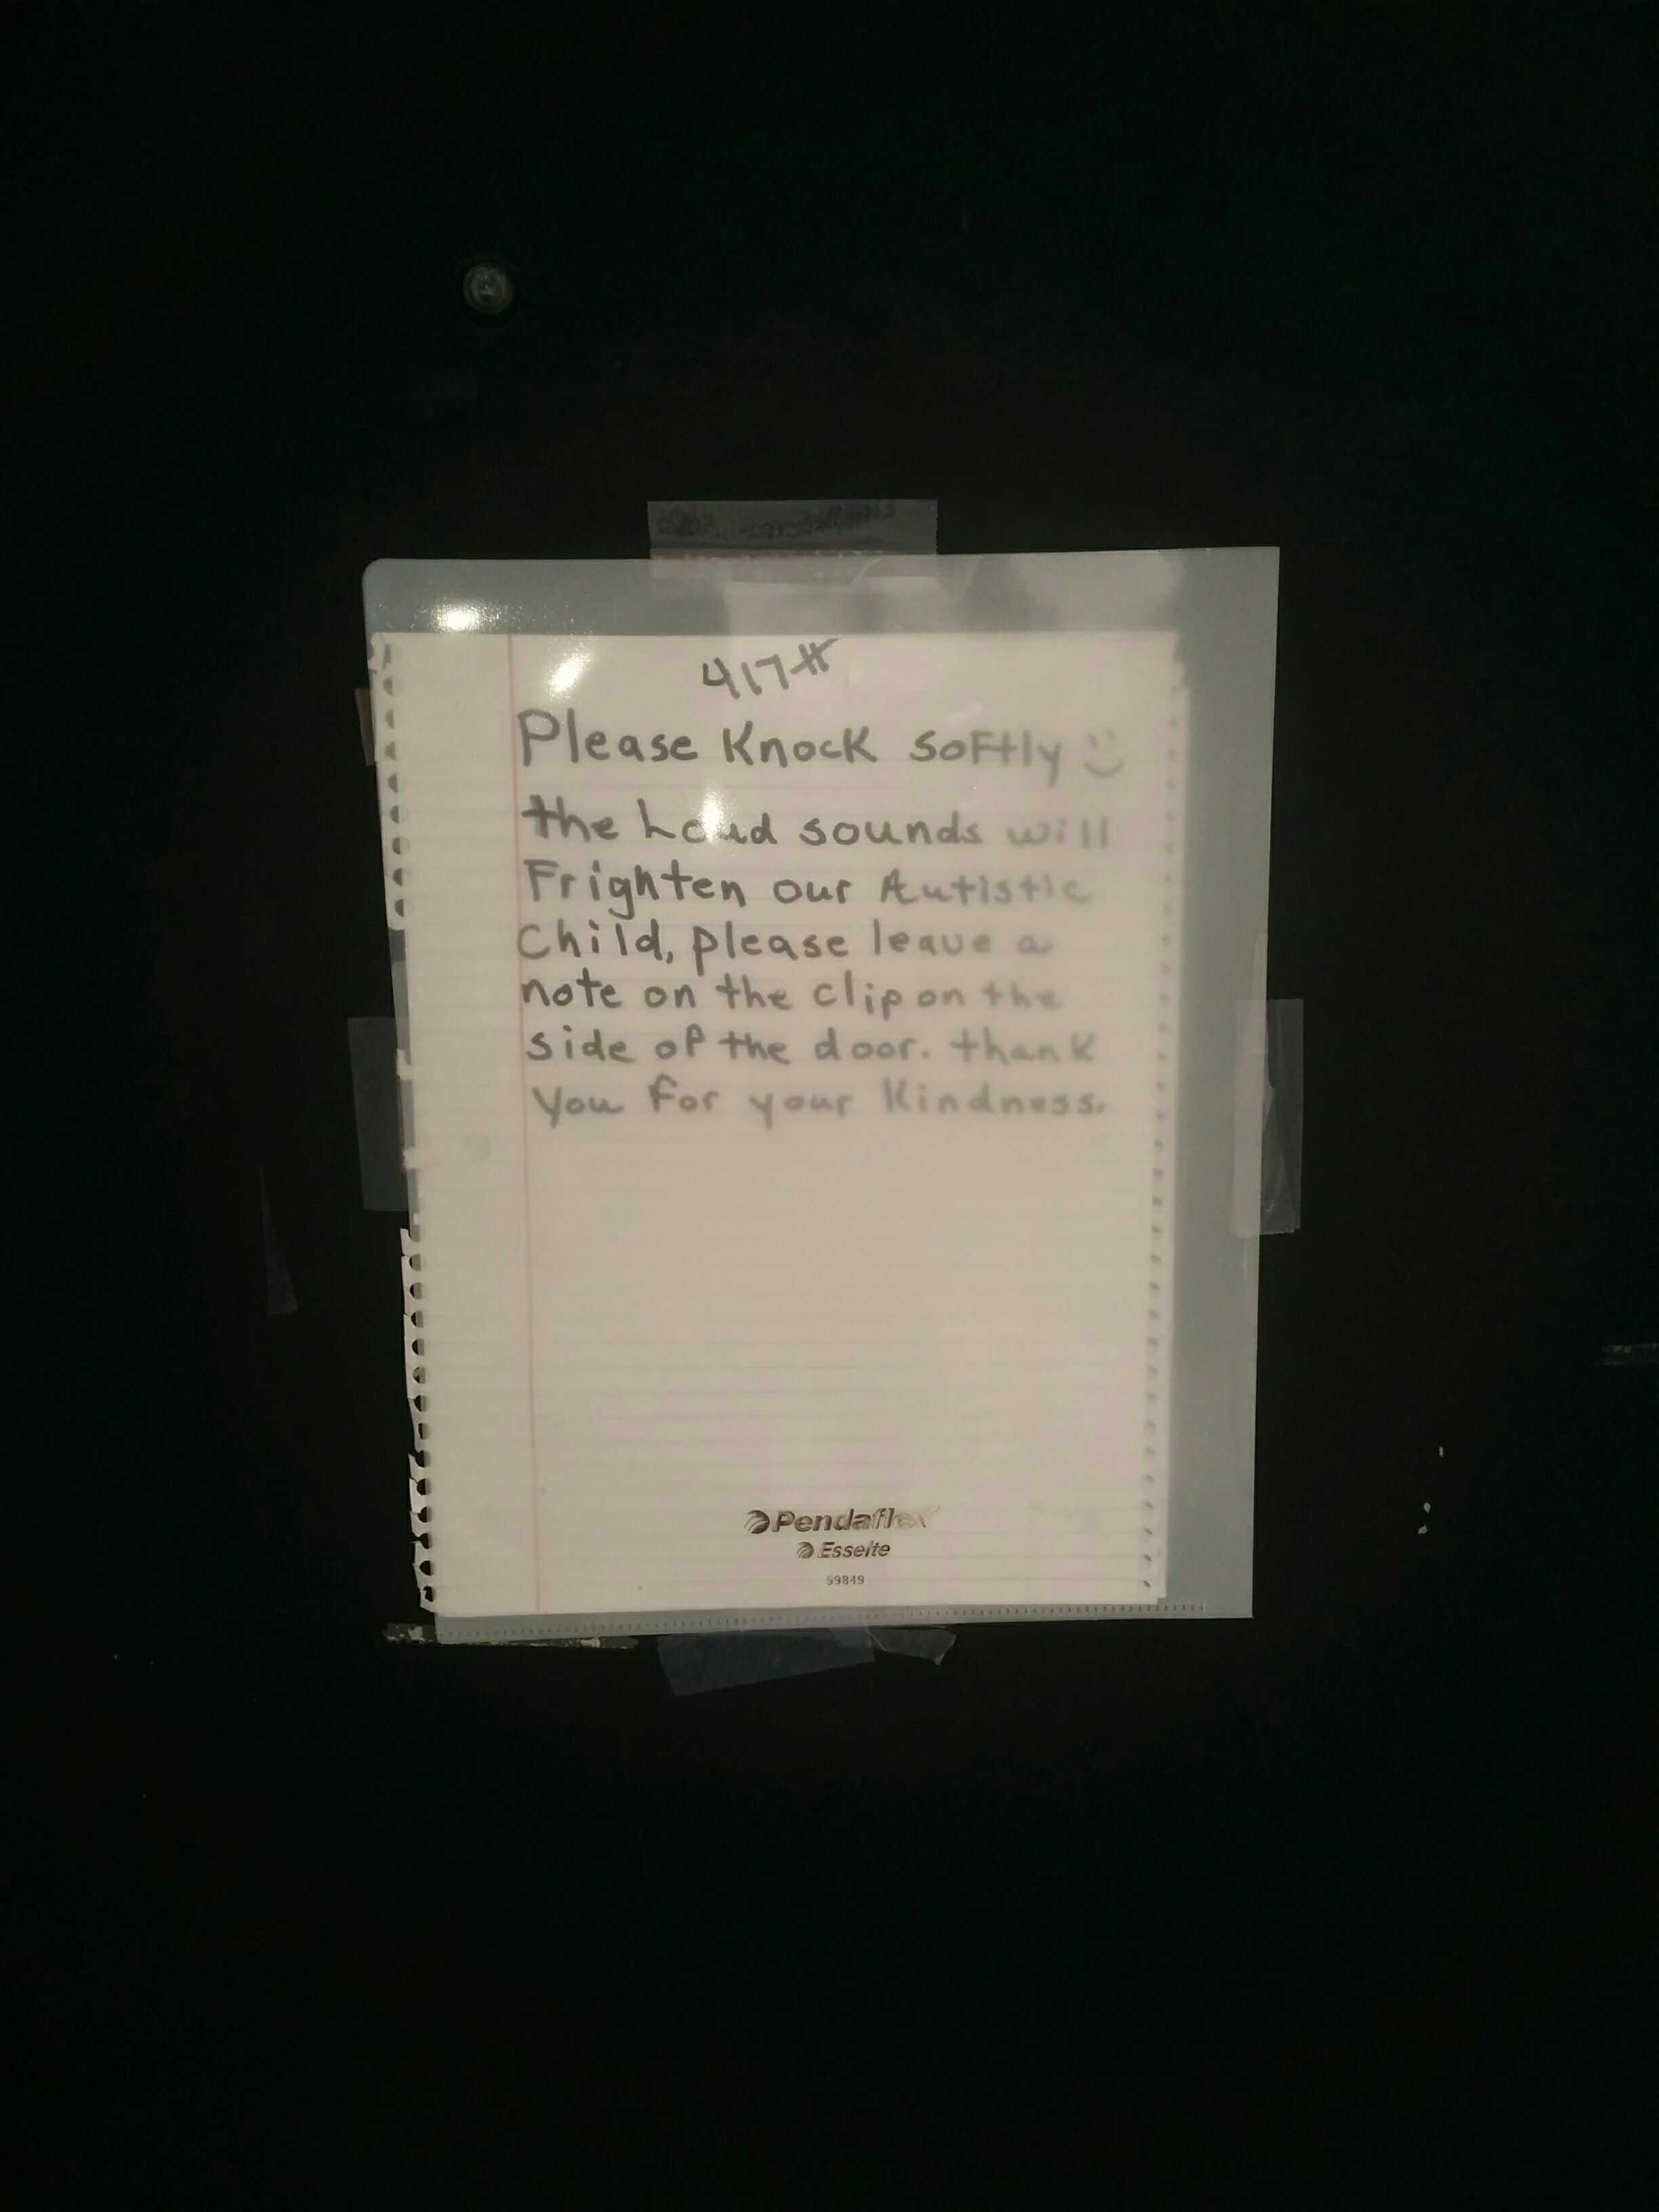 417#
Please Knock softly :)
the Loud sounds will
Frighten our Autistic
Child, please leave a
note on the clip on the
side of the door. thank
you for your Kindness.
Pendaflex
Esselte
99849